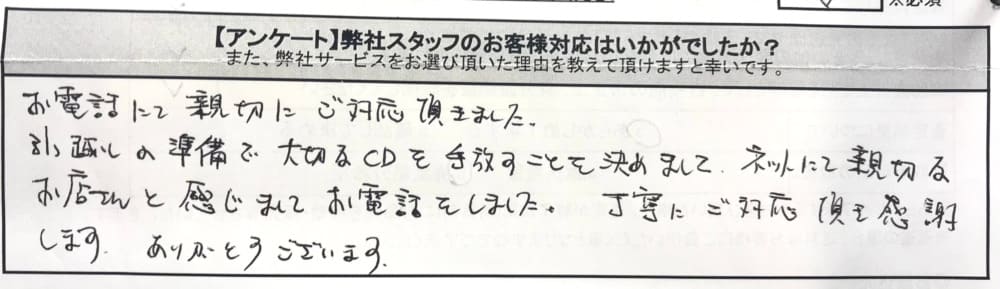 ※必須
【アンケート】弊社スタッフのお客様対応はいかがでしたか？
また、弊社サービスをお選び頂いた理由を教えて頂けますと幸いです。
お電話にて親切にご対応頂きました。
引っ越しの準備で大切なCDを手放すことを決めまして、ネットにて親切な
お店さんと感じましてお電話をしました。丁寧にご対応頂き感謝
します。ありがとうございます。